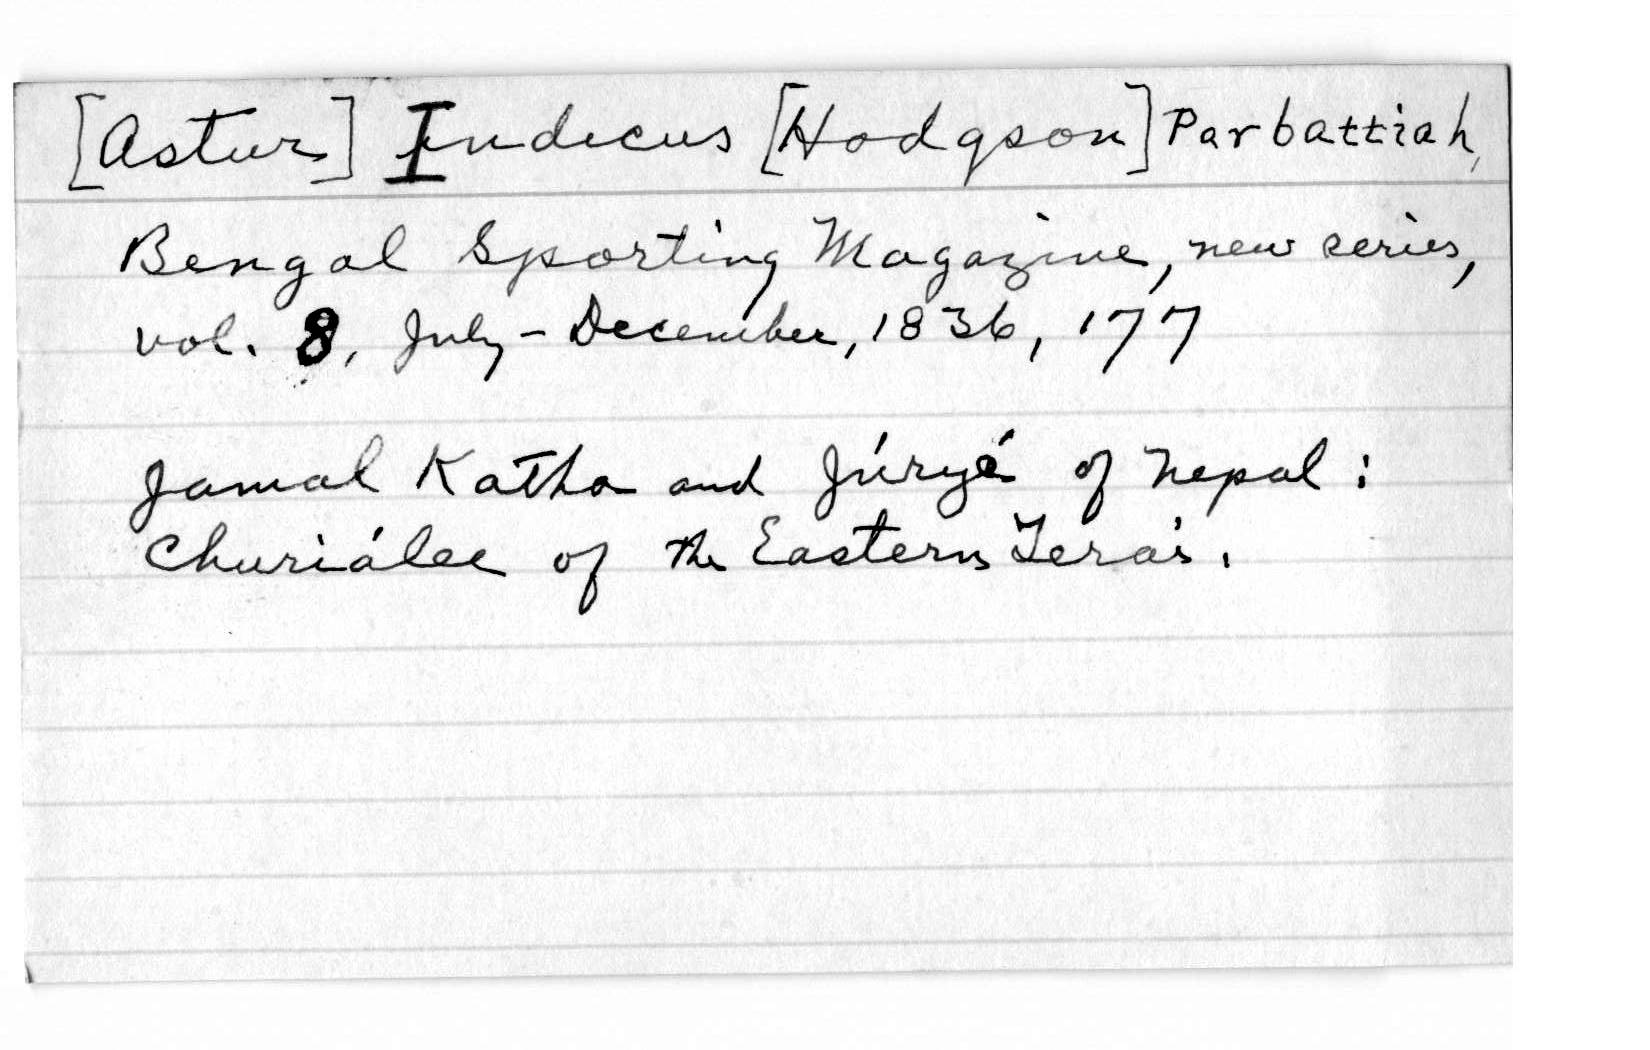 [Astur] Indicus [Hodgson] Parbattiah,
Bengal Sporting Magazine, new series,
vol. 8, July - December, 1836, 177
Jamal Katha and Júryé of Nepal:
Churiálee of the Eastern Terai.